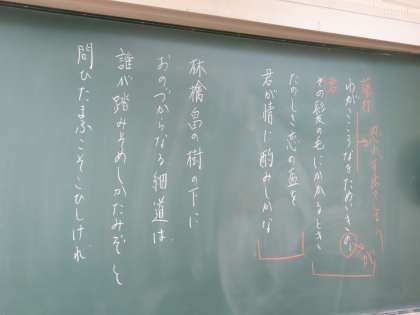 わがこころなきためいきの
その髪の毛にかかるとき
たのしき恋の盃を
君が情に酌みしかな
林檎畠の樹の下に
おのづからなる細道は
誰が踏みそめしかたみぞと
問ひたまふこそこひしけれ
君
が